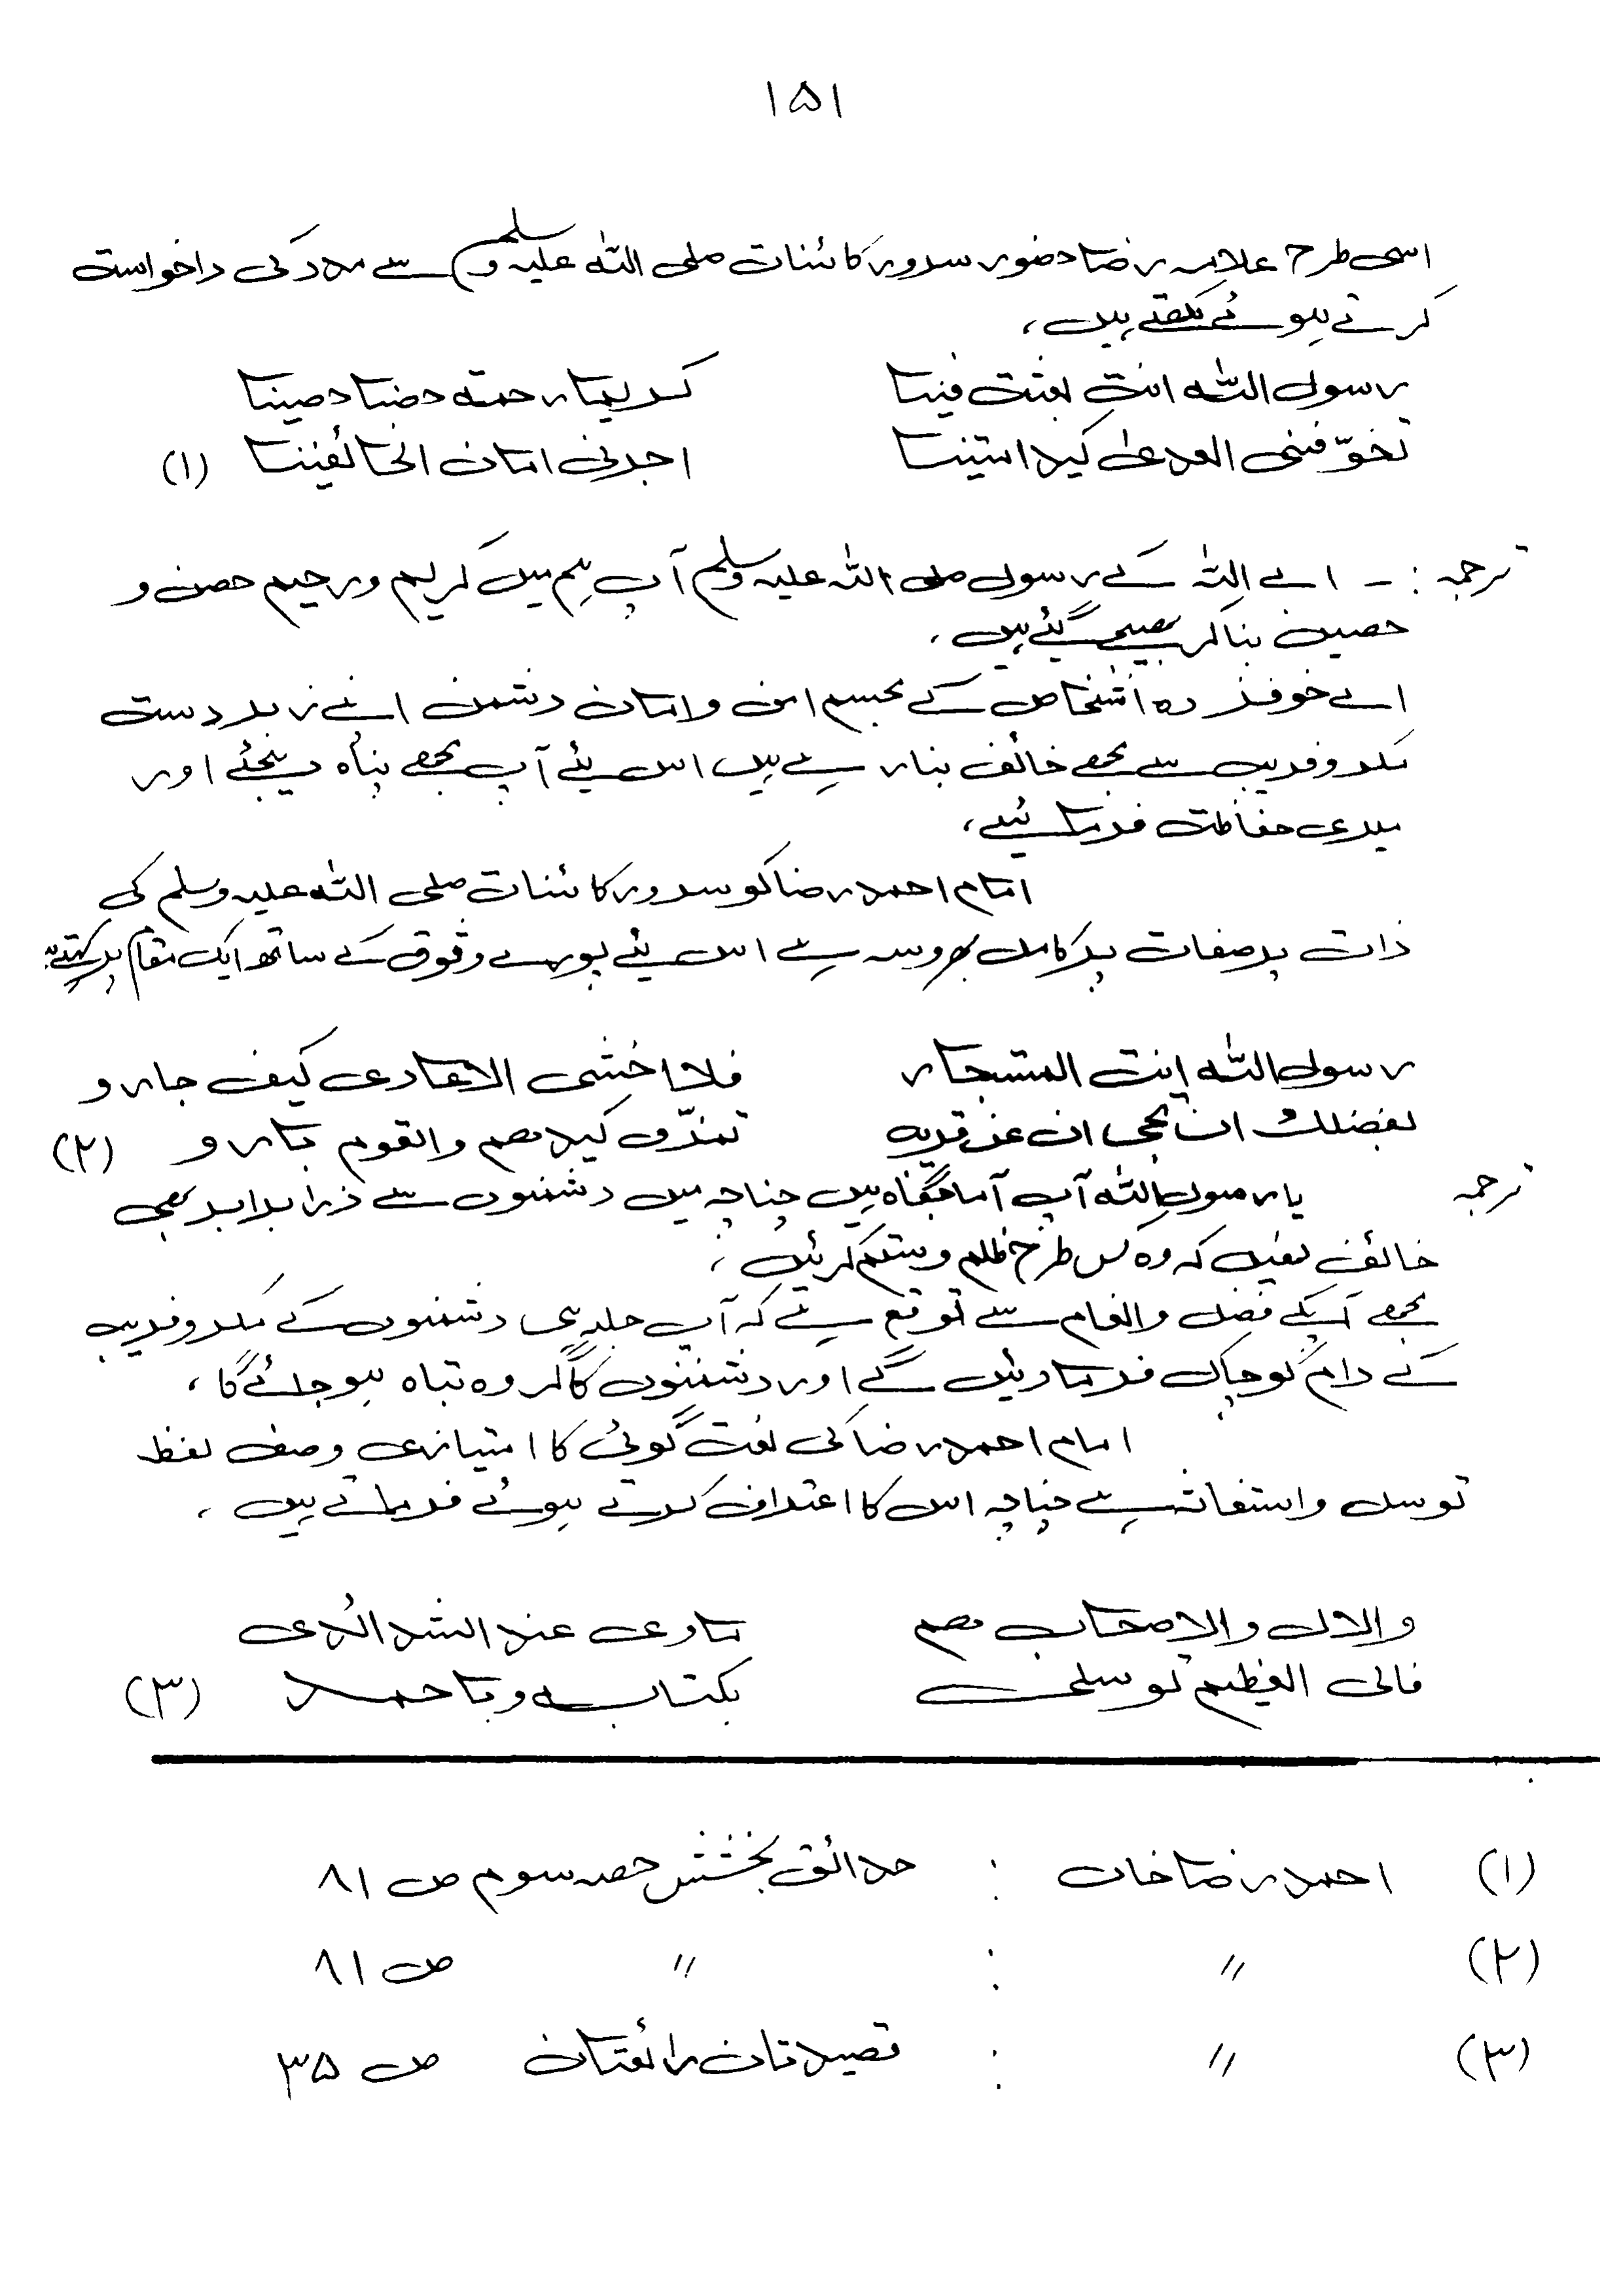 ۱۵۱
اسی طرح علامہ رضا حضور سرور کائنات صلی اللہ علیہ وسلم سے مدد کی داخواست
کرتے ہوئے لکھتے ہیں،
رسول اللہ انت بعثت فینا کریما رحمتہ حضنا حصینا
تخوّفنی العدیٰ کیدا متینا اجدنی امان الخائفینا (۱)
ترجمہ :۔ اے اللہ کے رسول صلی اللہ علیہ وسلم آپ ہم میں کریم ورحیم حصن و
حصین بنا کر بھیجے گئے ہیں،
اے خوفزدہ اشخاص کے مجسم امن وامان دشمن اپنے زبردست
مکر وفریب سے مجھے خائف بنا رہے ہیں اس لئے آپ مجھے پناہ دیجئے اور
میری حفاظت فرمائیے،
امام احمد رضا کو سرور کائنات صلی اللہ علیہ وسلم کی
ذات پر صفات پر کامل بھروسہ ہے اس لئے پورے وثوق کے ساتھ ایک مقام پر کہتے ہیں
رسول اللہ انت المستجار فلا اخشی الاعادی کیف جارو
بفضلک ان نجی ان عن قریب تمزّق کیدھم والقوم بارو (۲)
ترجمہ یا رسول اللہ آپ آماجگاہ ہیں چناچہ میں دشمنوں سے ذرا برابر بھی
خائف نہیں کہ وہ کس طرح ظلم وستم کریں،
مجھے آپکے فضل وانعام سے توقع ہے کہ آپ جلد ہی دشمنوں کے مکر وفریب
کے دام کو چاک فرما دیں گے اور دشمنوں کا گروہ تباہ ہو جائے گا،
امام احمد رضا کی نعت گوئی کا امتیازی وصف لفظ
توسل واستغاثہ ہے چناچہ اس کا اعتراف کرتے ہوئے فرماتے ہیں،
والال والاصحاب ھم ماوی عند الشدائدی
فالی العظیم توسلی بکتابہ وباحمد (۳)
(۱) احمد رضا خان : حدائق بخشش حصہ سوم ص ۸۱
(۲) 〃 : 〃 ص ۸۱
(۳) 〃 : قصیدتان رائعتان ص ۳۵